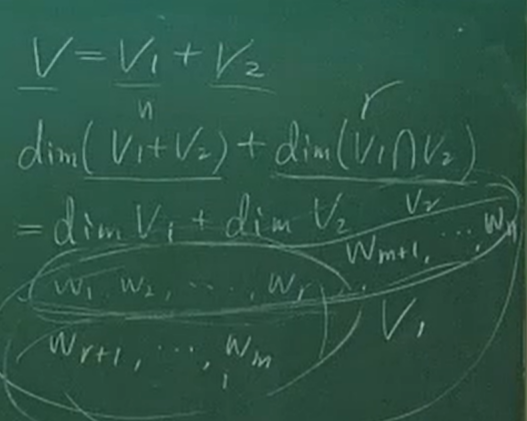 V = V₁ + V₂
n
r
dim(V₁+V₂) + dim(V₁∩V₂)
= dim V₁ + dim V₂
V₂
w₁, w₂, ⋯, wᵣ, wₘ₊₁, ⋯, wₙ
wᵣ₊₁, ⋯, wₘ
V₁